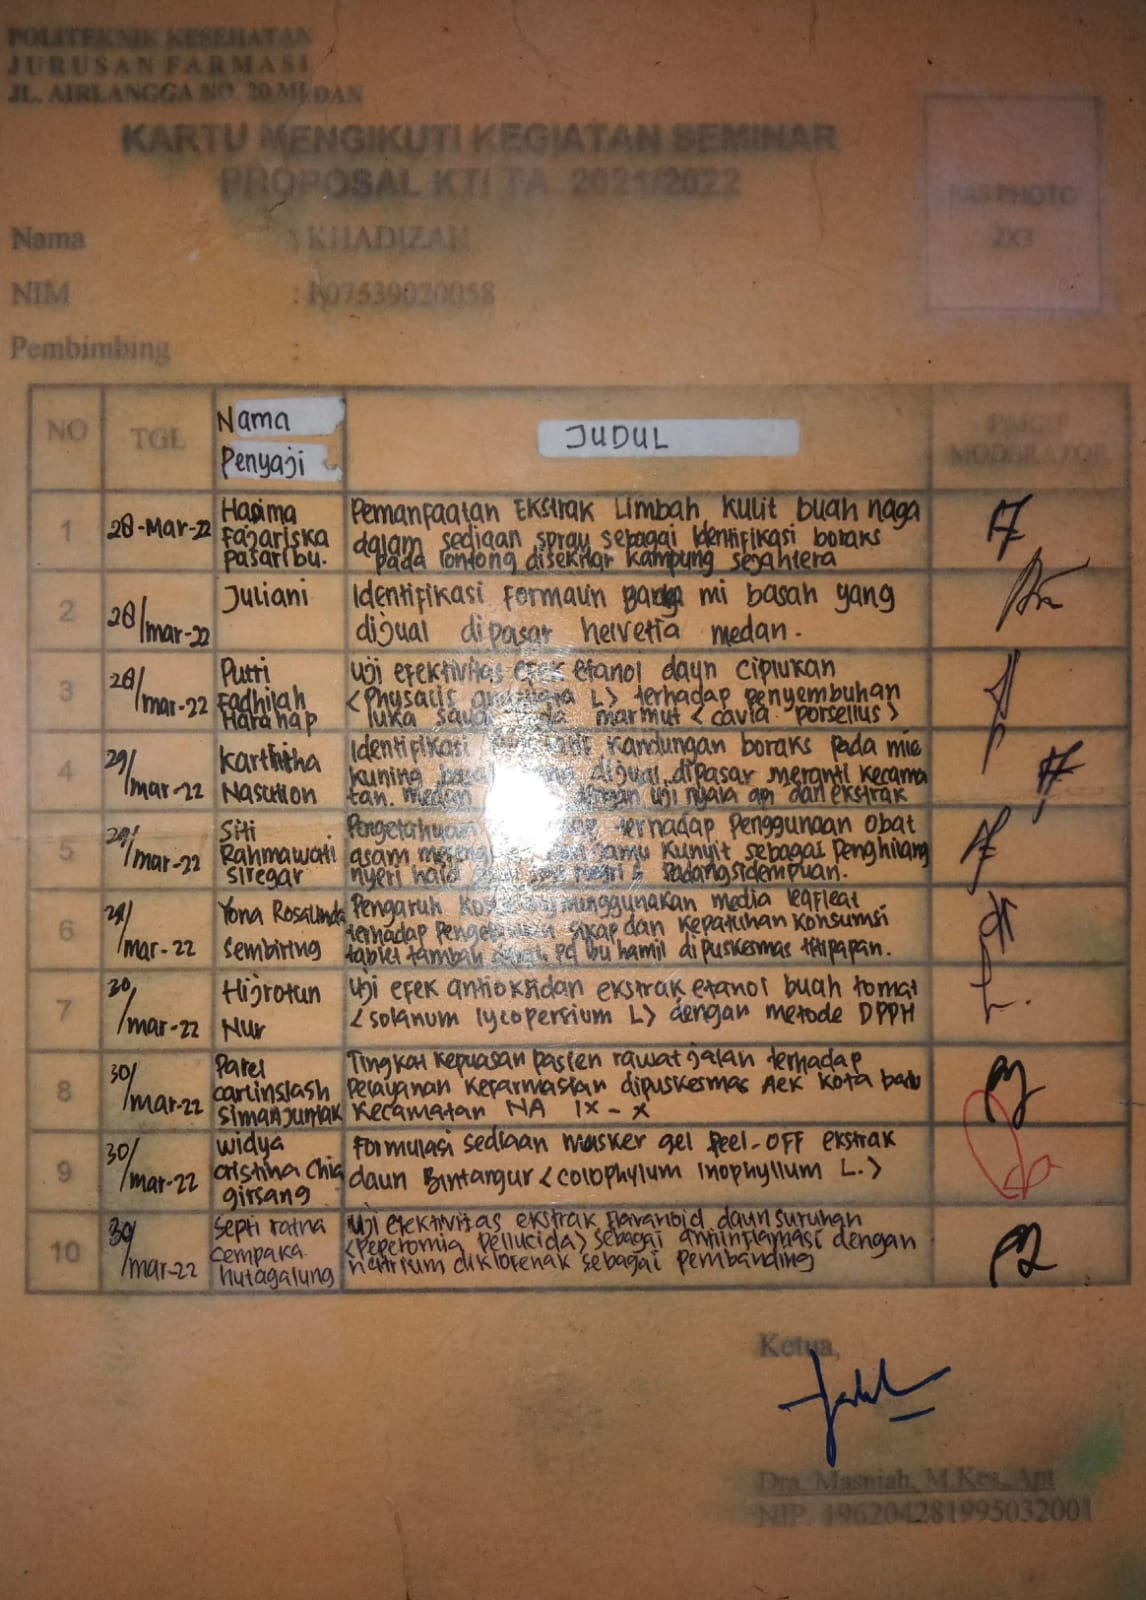 POLITEKNIK KESEHATAN
JURUSAN FARMASI
JL. AIRLANGGA NO. 20 MEDAN
KARTU MENGIKUTI KEGIATAN SEMINAR
PROPOSAL KTI TA. 2021/2022
PAS PHOTO
2X3
Nama : KHADIZAH
NIM : P07539020058
Pembimbing :
NO TGL Nama Penyaji JUDUL PARAF MODERATOR
1 28-Mar-22 Hasima Fajariska Pasaribu. Pemanfaatan Ekstrak Limbah kulit buah naga
dalam sediaan spray sebagai Identifikasi boraks
pada lontong disekitar kampung sejahtera
2 28/mar-22 Juliani Identifikasi formalin mi basah yang
dijual dipasar helvetia medan.
3 28/mar-22 Putri Fadhilah Harahap Uji efektivitas efek etanol daun ciplukan
<Physalis L> terhadap penyembuhan
luka marmut <cavia porsellus>
4 29/mar-22 Nasution Identifikasi kandungan boraks pada mie
kuning dijual dipasar meranti kecama
tan. medan dengan uji nyala api dan ekstrak
5 29/mar-22 Siti Rahmawati Siregar Pengetahuan terhadap penggunaan obat
asam jamu kunyit sebagai penghilang
nyeri haid Padangsidempuan.
6 29/mar-22 Yona Rosalinda Sembiring Pengaruh menggunakan media leafleat
terhadap sikap dan kepatuhan konsumsi
tablet tambah ibu hamil di puskesmas
7 30/mar-22 Hijrotun Nur Uji efek antioksidan ekstrak etanol buah tomat
<solanum lycopersium L> dengan metode DPPH
8 30/mar-22 Simanjuntak Tingkat kepuasan pasien rawat jalan terhadap
pelayanan kefarmasian dipuskesmas Aek kota batu
kecamatan NA IX-X
9 30/mar-22 widya cristina girsang Formulasi sediaan masker gel Peel-OFF ekstrak
daun Bintangur <colophylum Inophyllum L.>
10 30/mar-22 Septi ratna cempaka hutagalung Uji efektivitas ekstrak daun suruhan
<Peperomia Pellucida> sebagai antiinflamasi dengan
natrium diklofenak sebagai pembanding
Ketua,
Dra. Masniah, M.Kes., Apt
NIP. 196204281995032001